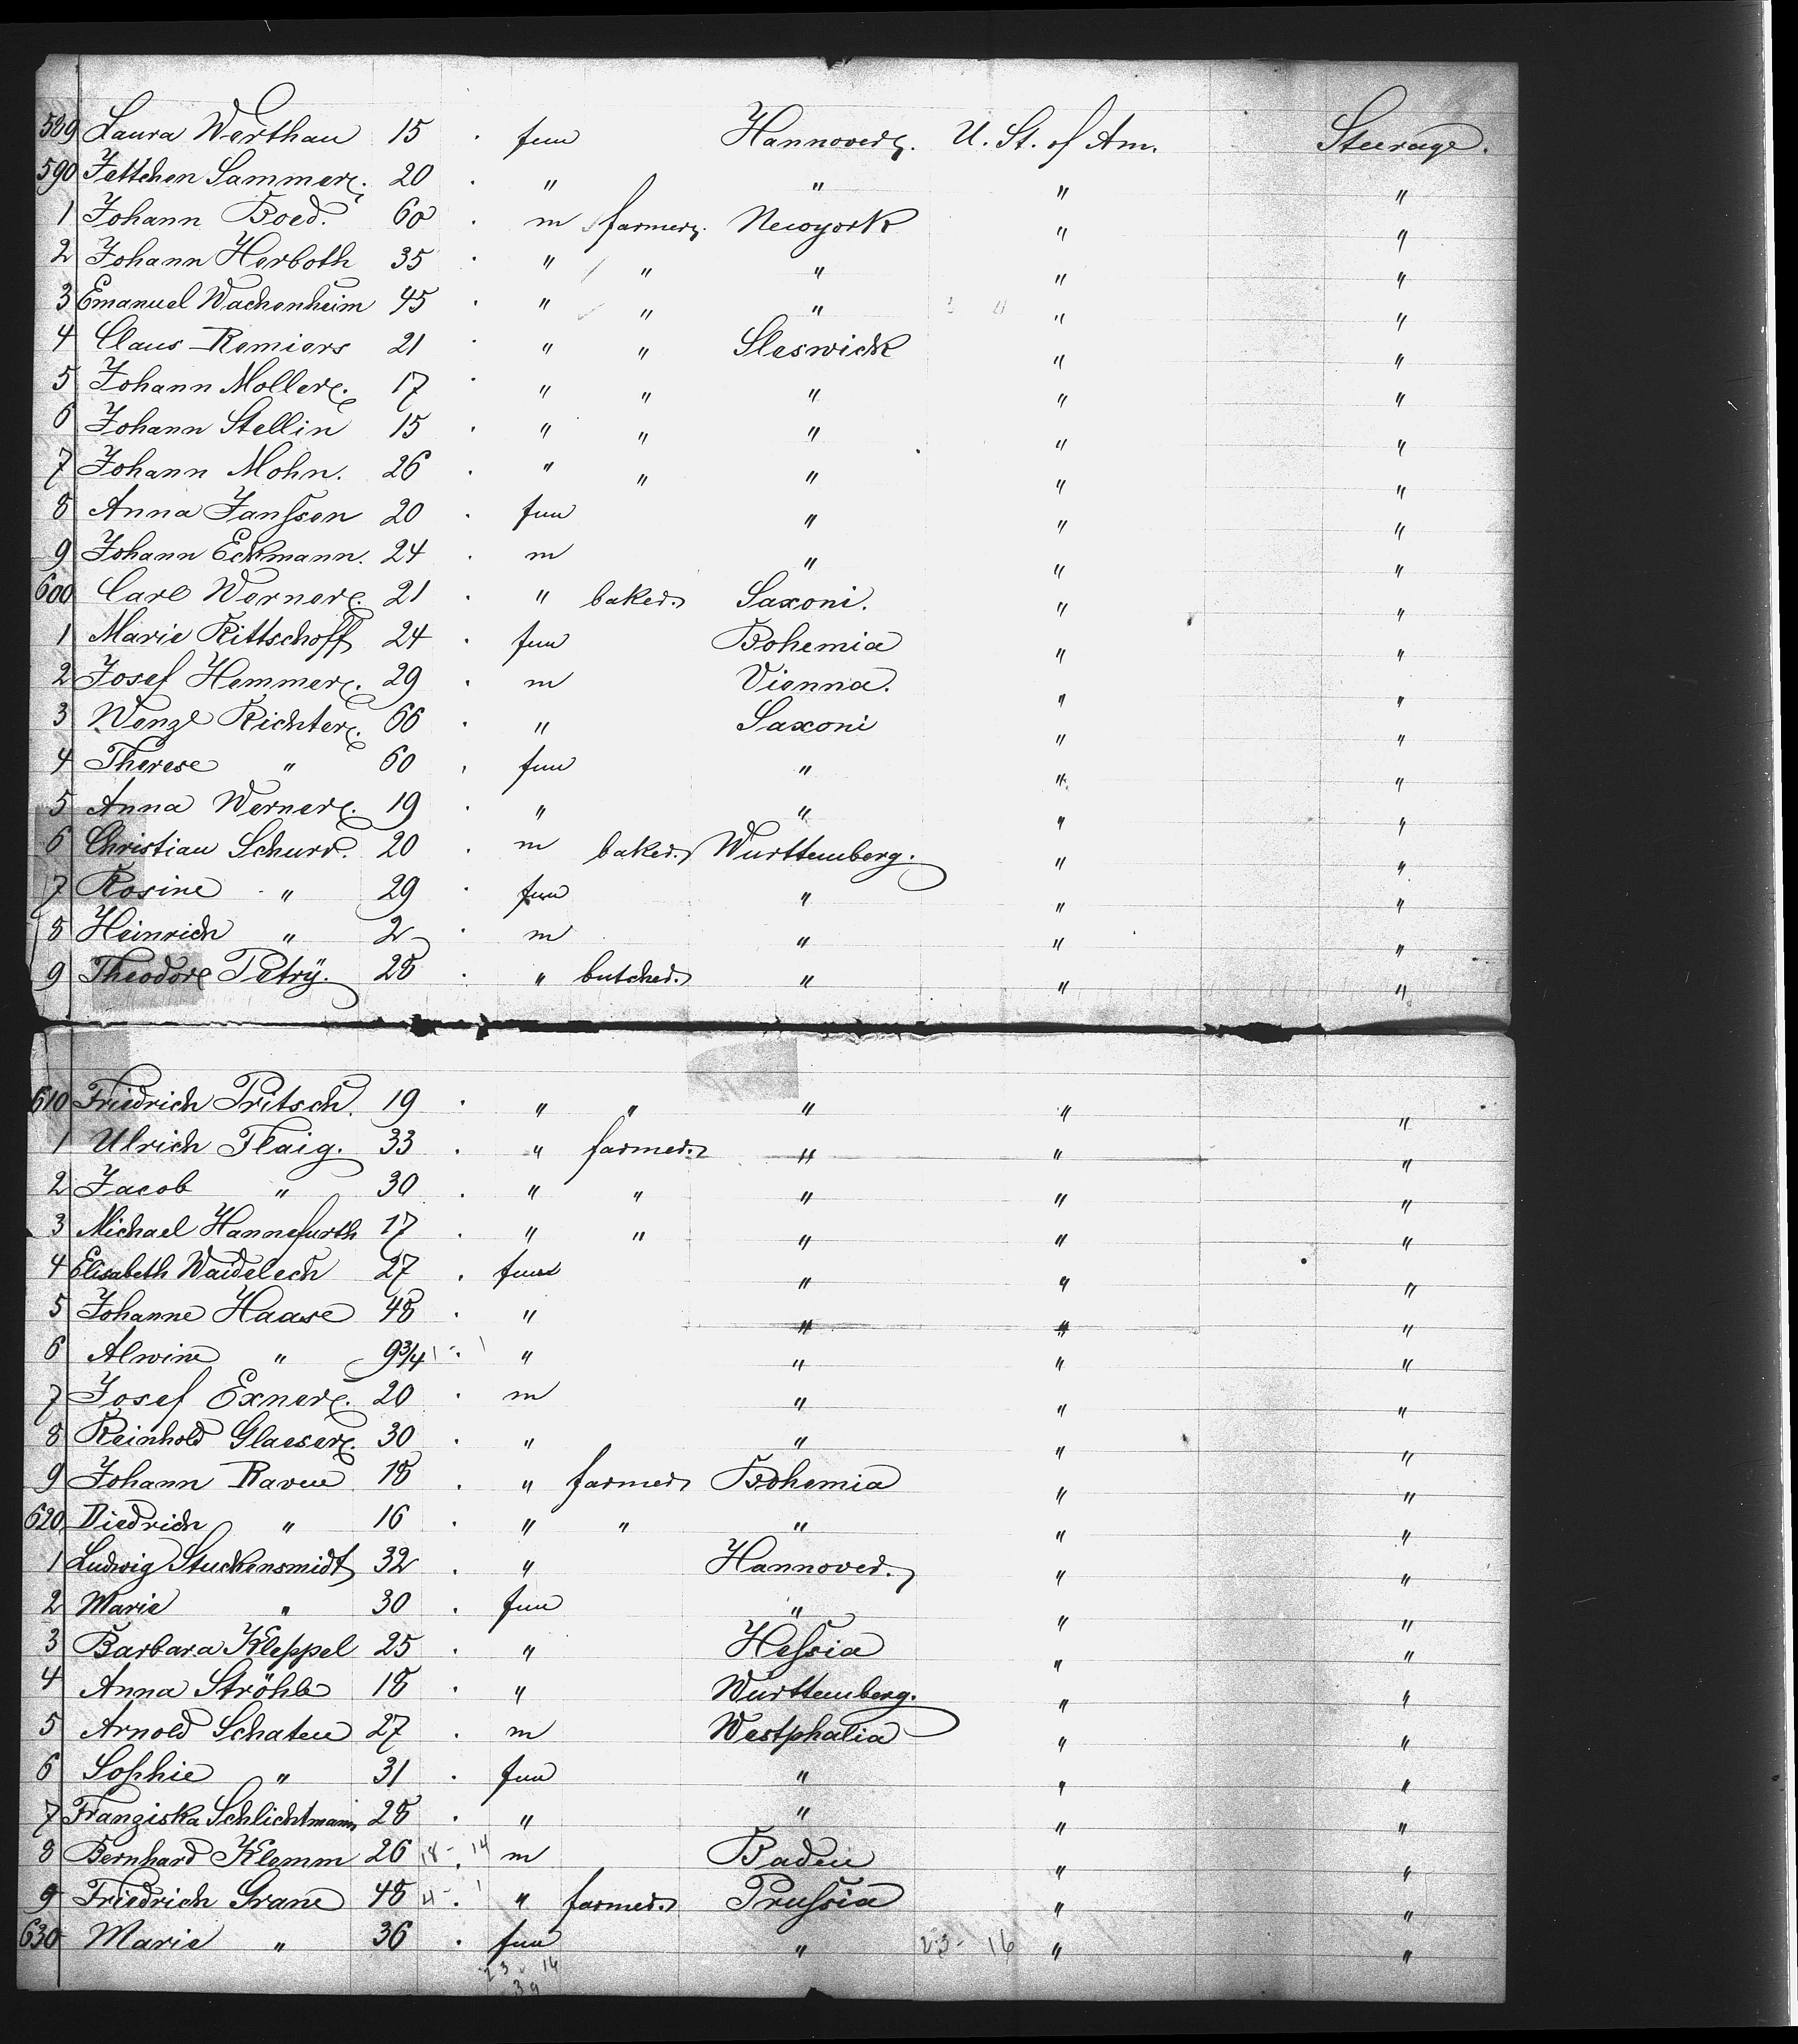 589 Laura Werthau 15 . fem Hannover. U. St. of Am. Steerage.
590 Jettchen Sammer. 20 . " " " "
1 Johann Boed. 60 . m farmer. Newyork " "
2 Johann Herboth 35 . " " " " "
3 Emanuel Wachenheim 45 . " " " " "
4 Claus Remiers 21 . " " Sleswick " "
5 Johann Moller. 17 . " " " " "
6 Johann Stellin 15 . " " " " "
7 Johann Mohn. 26 . " " " " "
8 Anna Janſsen 20 . fem " " "
9 Johann Eckmann. 24 . m " " "
600 Carl Werner. 21 . " baker. Saxoni. " "
1 Marie Rittschoff 24 . fem Bohemia " "
2 Josef Hemmer. 29 . m Vienna. " "
3 Wenzl Richter. 66 . " Saxoni " "
4 Therese " 60 . fem " " "
5 Anna Werner. 19 . " " " "
6 Christian Schurr. 20 . m baker. Wurttemberg. " "
7 Rosine " 29 . fem " " "
8 Heinrich " 2 . m " " "
9 Theodore Petrÿ. 28 . " butcher. " " "
610 Friedrich Pritsch. 19 . " " " " "
1 Ulrich Flaig. 33 . " farmer. " " "
2 Jacob " 30 . " " " " "
3 Michael Hannefurth 17 . " " " " "
4 Elisabeth Waidelech 27 . fem " " "
5 Johanne Haase 48 . " " " "
6 Alwine " 9¾ 1 - . 1 " " " "
7 Josef Exner. 20 . m " " "
8 Reinhold Glaeser. 30 . " " " "
9 Johann Raven 18 . " farmer Bohemia " "
620 Diedrich " 16 . " " " " "
1 Ludwig Stuckensmidt 32 . " Hannover. " "
2 Marie " 30 . fem " " "
3 Barbara Kleppel 25 . " Heſsia " "
4 Anna Ströhle 18 . " Wurttemberg. " "
5 Arnold Schaten 27 . m Westphalia " "
6 Sophie " 31 . fem " " "
7 Franziska Schlichtmann 28 . " " " "
8 Bernhard Klemm 26 18 - . 14 m Baden " "
9 Friedrich Grane 48 4 - . 1 " farmer. Pruſsia " "
630 Marie " 36 . fem " 23 - 16 " "
23 16
39